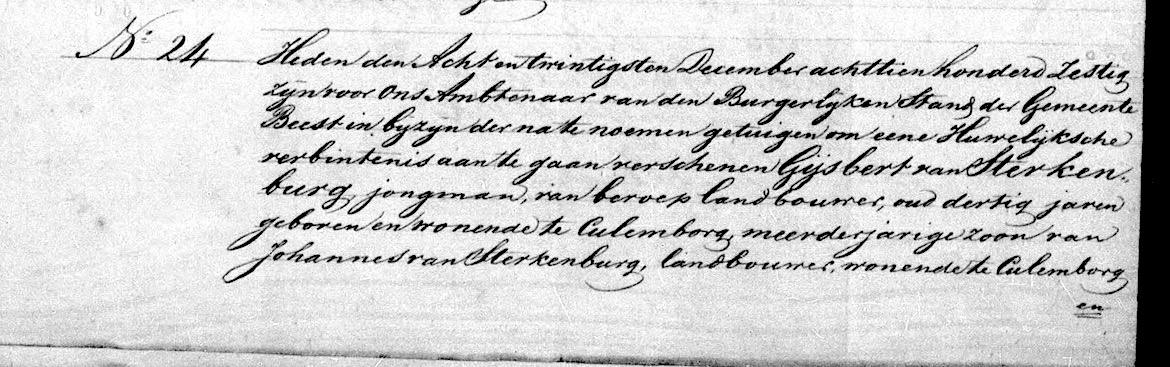 N.º 24
Heden den Acht en twintigsten December achttien honderd Zestig
zijn voor Ons Ambtenaar van den Burgerlyken Stand der Gemeente
Beest in bijzijn der na te noemen getuigen om eene Huwelijksche
verbintenis aan te gaan verschenen Gijsbert van Sterken-
burg, jongman, van beroep landbouwer, oud dertig jaren
geboren en wonende te Culemborg, meerderjarige zoon van
Johannes van Sterkenburg, landbouwer, wonende te Culemborg
en